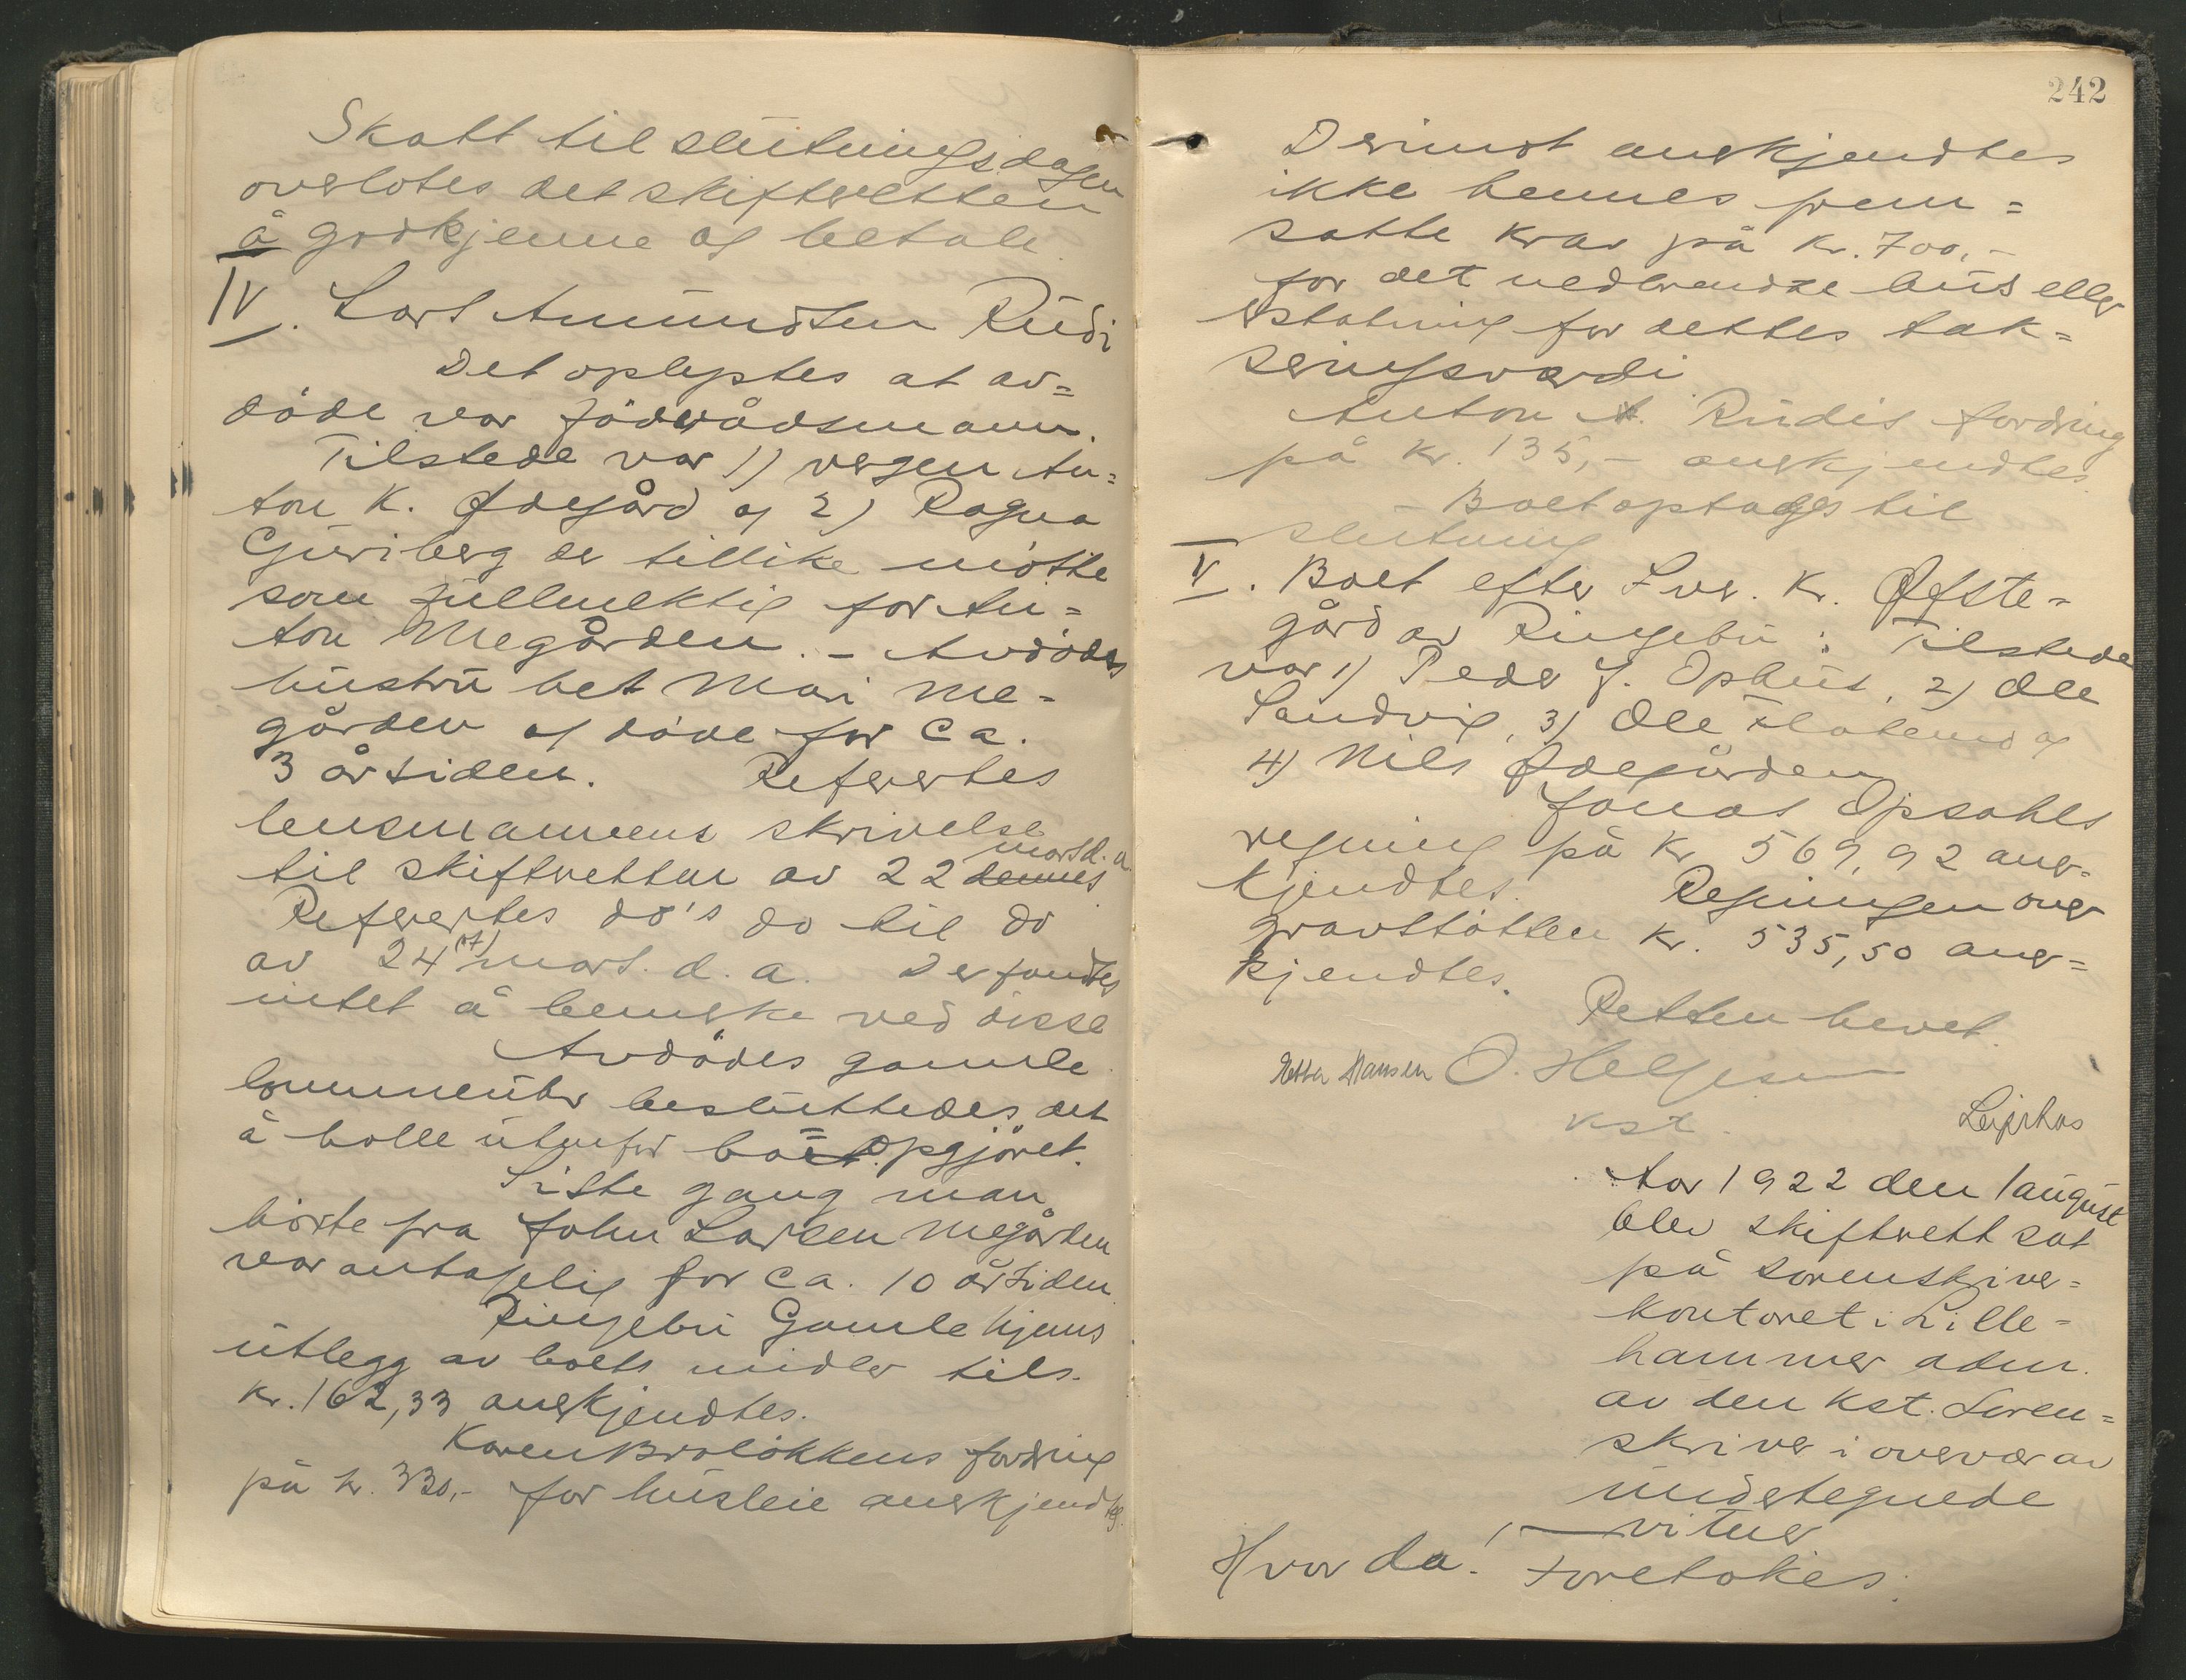 Skatt til slutningsdagen
overlotes det skifteretten
å godkjenne og betale.
IV. Lars Amundsen Rudi
Det oplystes at av=
døde varföderådsmann.
Tilstede var 1) vergen An=
ton K. Ødegård og 2) Ragna
Guriberg der tillike møtte
som fullmektig for An=
ton Megården. - Avdödes
hustru het Mari Me=
gården og döde for ca.
3 år siden. Refertes
lensmannens skrivelse
til skifteretten av 22 dennes mars d. a.
Refertes do's do til do
av 24 mars. d. a. Der fandtes
intet å bemerke ved disse
Avdødes gamle
lommeur besluttedes det
å holle utenfor bo=opgjöret.
Siste gang man
hörte fra John Larsen Megården
var antagelig for ca. 10 år siden.
Ringebu Gamlehjems
utlegg av boets midler tils.
kr. 162,33 anerkjendtes.
Karen Brolökkens fordring
på kr. 330,- for husleie anerkjendtes.
242
Derimot anerkjendtes
ikke hennes frem=
satte krav på kr. 700,-
for det nedbrendte hus eller
erstatning for dettes tak=
seringsværdi
Anton A. Rudis fordring
på kr. 135,- anerkjendtes.
- Boet optages til
slutning
V. Boet efter Iver K. Øfste-
gård av Ringebu: Tilstede
var 1) Peder J. Ophus, 2) Ole
Sandvig, 3) Ole Flatemo og
4) Nils Ødegården
Jonas Opsahls
regning på kr 569,92 aner-
kjendtes. Regningen over
gravstötten kr. 535,50 aner=
kjendtes.
Retten hevet.
Hansen O. Helgesen
kst.
Aar 1922 den 1 august
blev skifterett sat
på sorenskriver=
kontoret i Lille=
hammer adm.
av den kst. Soren=
skriver i overvær av
undertegnede
vitner
Hvor da! Foretokes: